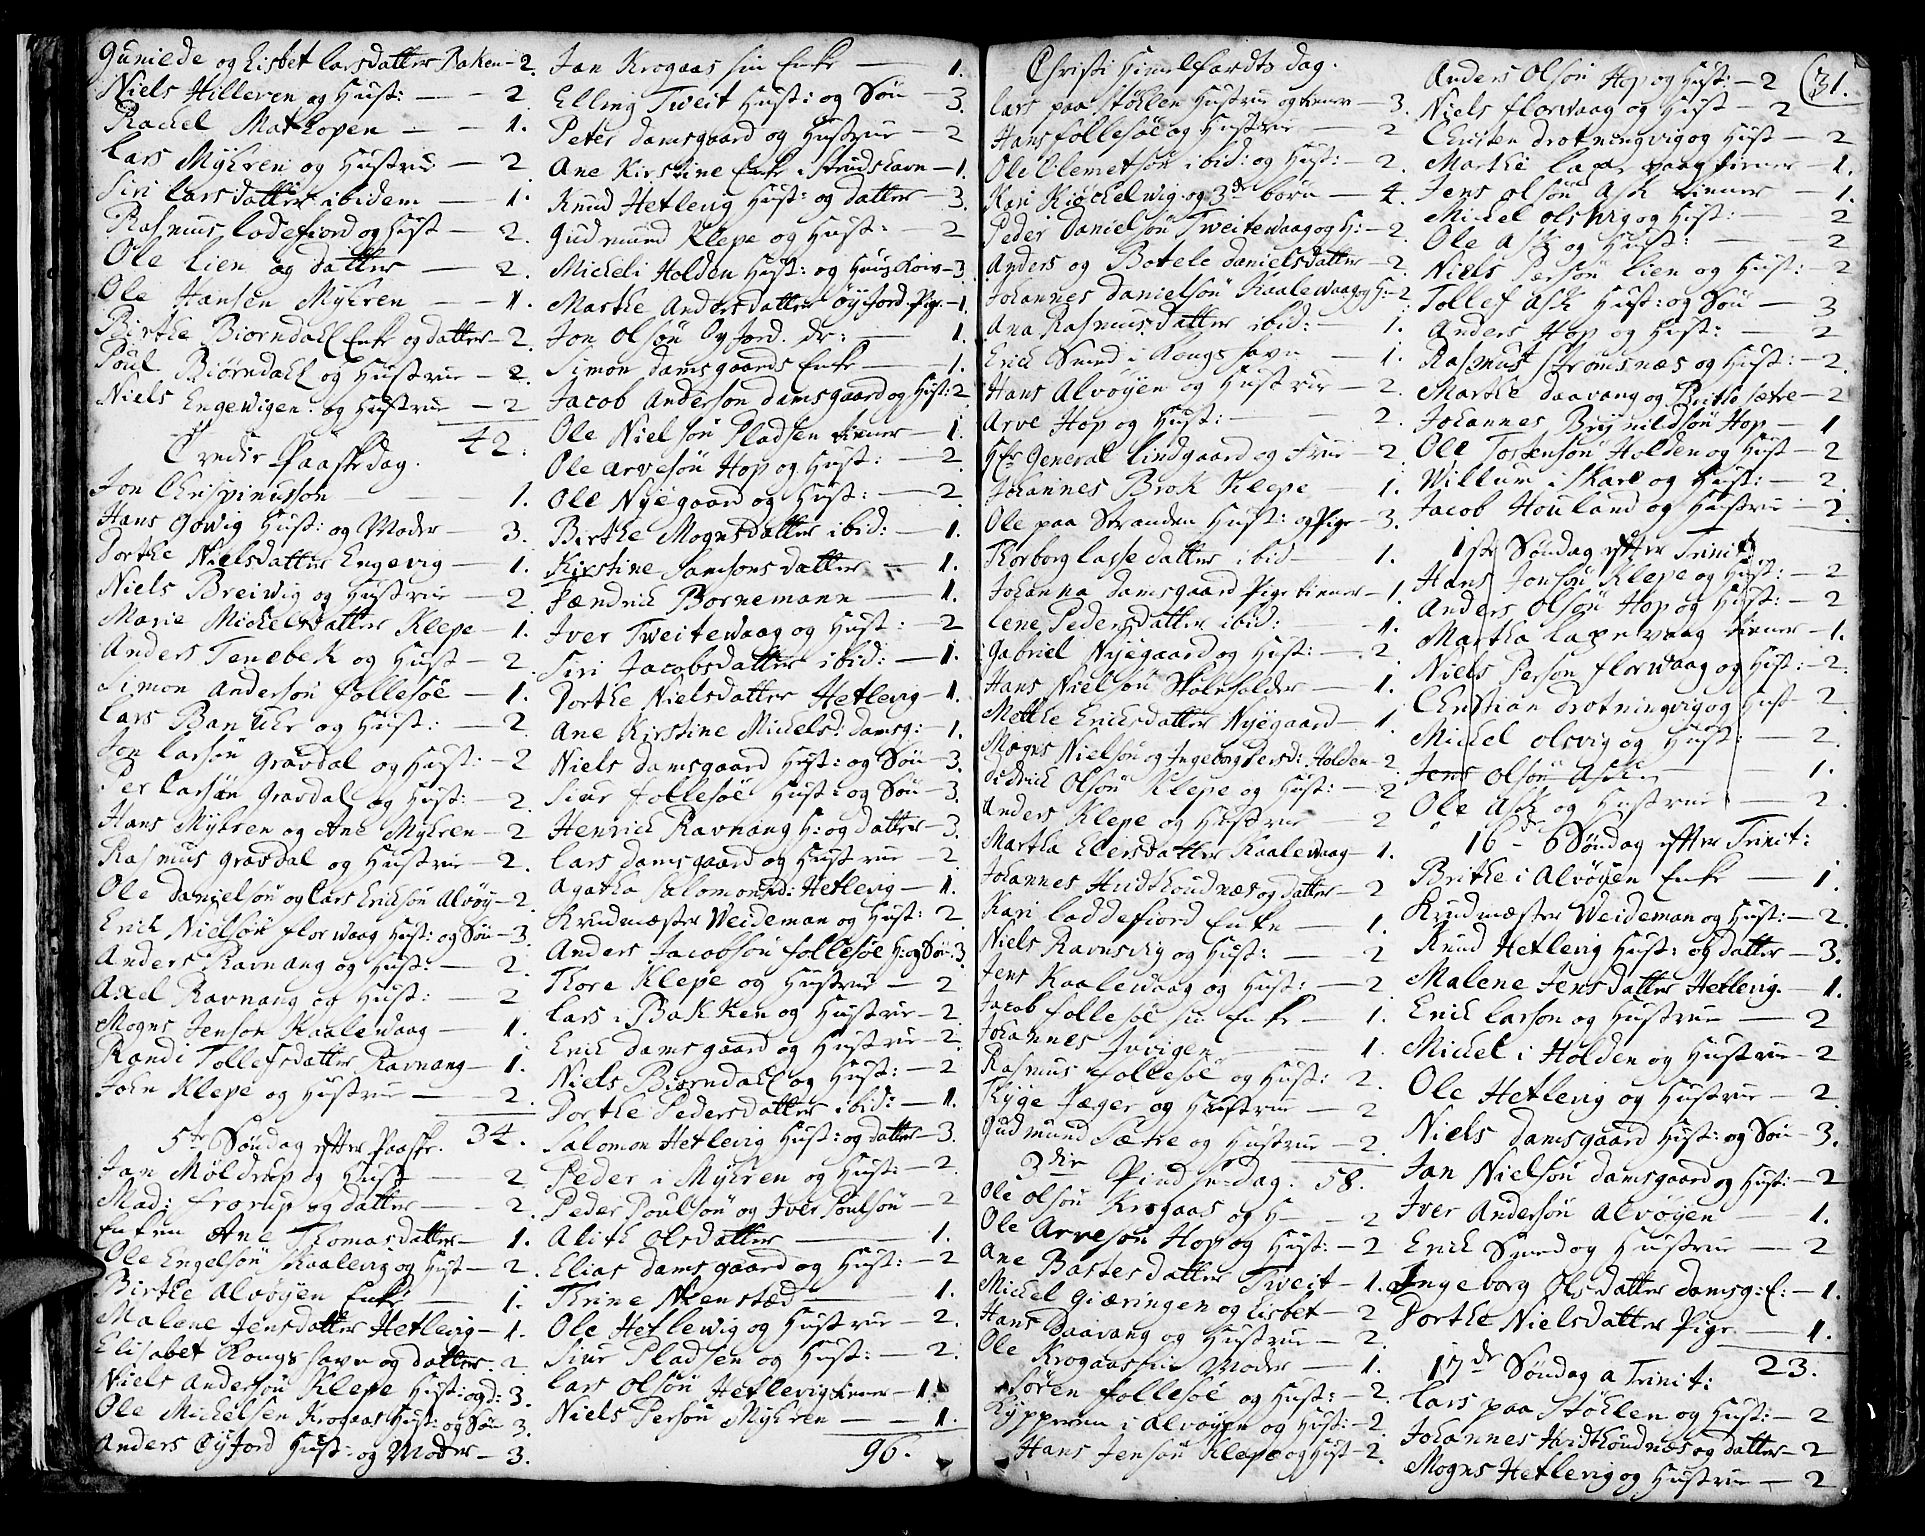 Gunilde og Lisbet Larsdatter Baken - 2.
Niels Hilleren og Hust: - 2
Rachel Mathopen - 1.
Lars Myhren og Hustrue - 2
Siri Larsdatter ibidem - 1.
Rasmus Ladefiord og Hust - 2.
Ole Lien og datter - 2.
Ole Hansen Myhren - 1.
Birthe Biorndahl Enke og datter - 2.
Poul Biørndahl og Hustrue - 2.
Niels Engewigen: og Hustrue - 2
42.
Tredie Paaskedag.
Jon Chrispinusson - 1.
Hans Gowig Hust: og Moder - 3.
Dorthe Nielsdatter Engevig - 1.
Niels Breiwig og Hustrue - 2.
Marie Michelsdatter Klepe - 1.
Anders Tenebek og Hust - 2
Simon Anderson follesøe - 1.
Lars Banucke og Hust: - 2.
Jon Larsøn Gravdal og Hust: - 2
Per Larsøn Gravdal og Hust: - 2.
Hans Myhren og Ane Myhren - 2
Rasmus Gravdal og Hustrue - 2.
Ole Danielsøn og Lars Erichsøn Alvøy - 2.
Erich Nielsøn florwaag Hust: og Søn - 3.
Anders Ravnang og Hust: - 2.
Axel Ravnang og Hust: - 2
Mogns Jenson Kaalewaag - 1.
Randi Tollefsdatter Ravnang - 1.
John Klepe og Hustrue - 2.
34.
5te Søndag efter Paaske.
Jan Møldrup og Hust - 2
Mad: frorup og datter - 2.
Enken Ane Thomasdatter - 1.
Ole Engelsøn Skaalevig og Hust - 2.
Birthe Alvøyen Enke - 1.
Malene Jensdatter Hetlevig - 1.
Elisabet Kongshavn og datter - 2
Niels Andersøn Klepe Hust: og d: 3.
Ole Michelsen Krogaas Hust: og Søn 3.
Anders Øyjord Hust: og Moder - 3.
Jan Krogaas sin Enke - 1.
Elling Tweit Hust: og Søn - 3.
Peter damsgaard og Hustrue - 2
Ane Kirstine Enke i Strudshavn - 1.
Knud Hetlevig Hust: og datter - 3.
Gudmund Klepe og Hust: - 2
Micheli Holden Hust: og Huus Kone - 3
Marthe Andersdatter Øyjord Pige - 1.
Jon Olsøn Øyjord. dr: - 1.
Simon damsgaards Enke - 1.
Jacob Anderson damsgaard og Hust: 2
Ole Nielsøn Pladsen tiener - 1.
Ole Arvesøn Hop og Hust: - 2.
Ole Nyegaard og Hust: - 2
Birthe Mognsdatter ibid: - 1.
Kirstine Samsonsdatter - 1.
Hændrich Bornemann - 1.
Iver Tweitewaag og Hust: - 2
Siri Jacobsdatter ibid: - 1.
Dorthe Nielsdatter Hetlevig - 1.
Ane Kirstine Michelsd: damsg: - 1.
Niels damsgaard Hust: og Søn - 3.
Siur follesøe Hust: og Søn - 3.
Henrich Ravnang H: og datter - 3.
Lars damsgaard og Hustrue - 2
Agatha Salomonsd: Hetlevig - 1.
Krudmæster Weideman og Hust: 2
Anders Jacobsøn follesøe H: og Søn. 3
Thore Klepe og Hustrue - 2
Lars i Bakken og Hustrue - 2
Erich damsgaard og Hustrue - 2.
Niels Biorndahl og Hust: - 2
Dorthe Pedersdatter ibid: - 1.
Salomon Hetlevig Hust: og datter - 3.
Peder i Myhren og Hust: - 2.
Peder Poulsøn og Iver Poulsøn - 2
Alith Olsdatter - 1.
Elias damsgaard og Hust: - 2
Thrine Steenstæd - 1.
Ole Hetlewig og Hustrue - 2.
Siur Pladsen og Hust: - 2.
Lars Olsøn Hetlevig tiener - 1.
Niels Persøn Myhren - 1.
96.
Christi Himelfardts dag.
Lars paa Støhlen Hustrue og tiener - 3.
Hans follesøe og Hustrue - 2
Ole Clemetsøn ibid: og Hust: - 2.
Kari Kiøchelwig og 3de børn - 4.
Peder Danielsøn Tweitewaag og H: - 2.
Anders og Botele Danielsdatter - 2.
Johannes Danielsøn Kaalewaag og H: - 2
Ana Rasmusdatter ibid: - 1.
Erich Smed i Kongshavn - 1.
Hans Alvøyen og Hustrue - 2.
Arve Hop og Hust: - 2.
Hr General Lindgaard og Frue - 2
Johannes Brok Klepe - 1.
Ole paa Stranden Hust: og Pige - 3.
Thorborg Lassedatter ibid - 1.
Johanna Damsgaard Pige tiener - 1.
Lene Pedersdatter ibid: - 1.
Gabriel Nyegaard og Hust: - 2
Hans Nielsøn Skoleholder - 1.
Mette Erichsdatter Nyegaard - 1.
Mogns Nielsøn og Ingeborg Persd: Holden - 2.
Didrich Olsøn Klepe og Hust: - 2
Anders Klepe og Hustrue - 2
Martha Elersdatter Kaalewaag - 1.
Johannes Hvidthoudnæs og datter - 2
Kari Laddefiord Enke - 1.
Niels Ravnsvig og Hust: - 2
Jens Kaalewaag og Hust: - 2
Jacob follesøe sin Enke - 1.
Johannes Juvigen - 1.
Rasmus follesøe og Hust: 2
Thyge Jæger og Hustrue - 2
Gudmund Sætre og Hustrue - 2.
3die Pindse-dag. 58.
Ole Olsøn Krogaas og H - 2
Ole Arvesøn Hop og Hust: - 2
Ane Bastesdatter Tweit - 1.
Michel Giæringen og Lisbet - 2
Hans Daavang og Hustrue - 2.
Ole Krogaas sin Moder - 1.
Søren follesøe og Hust: - 2.
Kypperen i Alvøyen og Hust: - 2.
Hans Jensøn Klepe og Hust - 2.
(31.
Anders Olsøn Hop og Hust: - 2
Niels florwaag og Hust - 2
Christen drotningvig og Hust - 2
Marthe Laxewaag tiener - 1.
Jens Olsøn Ask tiener - 1.
Michel Olsvig og Hust: - 2
Ole Ask og Hust: - 2
Niels Persøn Lien og Hust: - 2
Tollef Ask Hust: og Søn - 3
Anders Hop og Hust: - 2
Rasmus Strømsnæs og Hust: - 2.
Marthe Daavang og Brithe Sætre - 2
Johannes Brynildsøn Hop - 1
Ole Tostensøn Holden og Hust - 2
Willum i Skare og Hust: - 2.
Jacob Houland og Hustrue - 2.
1ste Søndag efter Trinit
Hans Jonsøn Klepe og Hust: - 2
Anders Olsøn Hop og Hust: - 2
Martha Laxevaag tiener - 1.
Niels Persøn florwaag og Hust: - 2.
Christian drotningvig og Hust 2
Michel Olsvig og Hust: - 2.
Jens Olsøn Ask - 1.
Ole Ask og Hustrue - 2.
16de Søndag efter Trinit:
Brithe i Alvøyen Enke - 1.
Krudmæster Weideman og Hust: - 2.
Knud Hetlevig Hust: og datter - 3.
Malene Jensdatter Hetlevig. - 1.
Erich Larson og Hustrue - 2
Michel i Holden og Hustrue - 2
Ole Hetlevig og Hustrue - 2.
Niels Damsgaard Hust: og Søn - 3.
Jan Nielsøn Damsgaard og Hust: - 2
Iver Andersøn Alvøyen - 1.
Erich Smed og Hustrue - 2
Ingeborg Olsdatter Damsg: E: - 1.
Dorthe Nielsdatter Pige - 1.
23.
17de Søndag a Trinit:
Lars paa Støhlen og Hust: - 2
Johannes Hvidthoudnæs og datter - 2
Mogns Hetlevig og Hustrue - 2